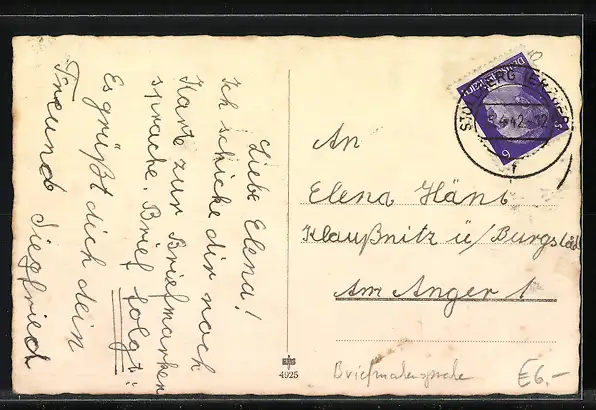 Liebe Elena!
Ich schicke dir noch
Karte zur Briefmarken
sprache. Brief folgt!!
Es grüßt dich dein
Freund Siegfried
An
Elena Häns
Klaußnitz ü/Burgstädt
Am Anger 1
STOLLBERG (ERZGEB)
5.4.42-12
f
6
4925
Briefmarkensprache
€6.–